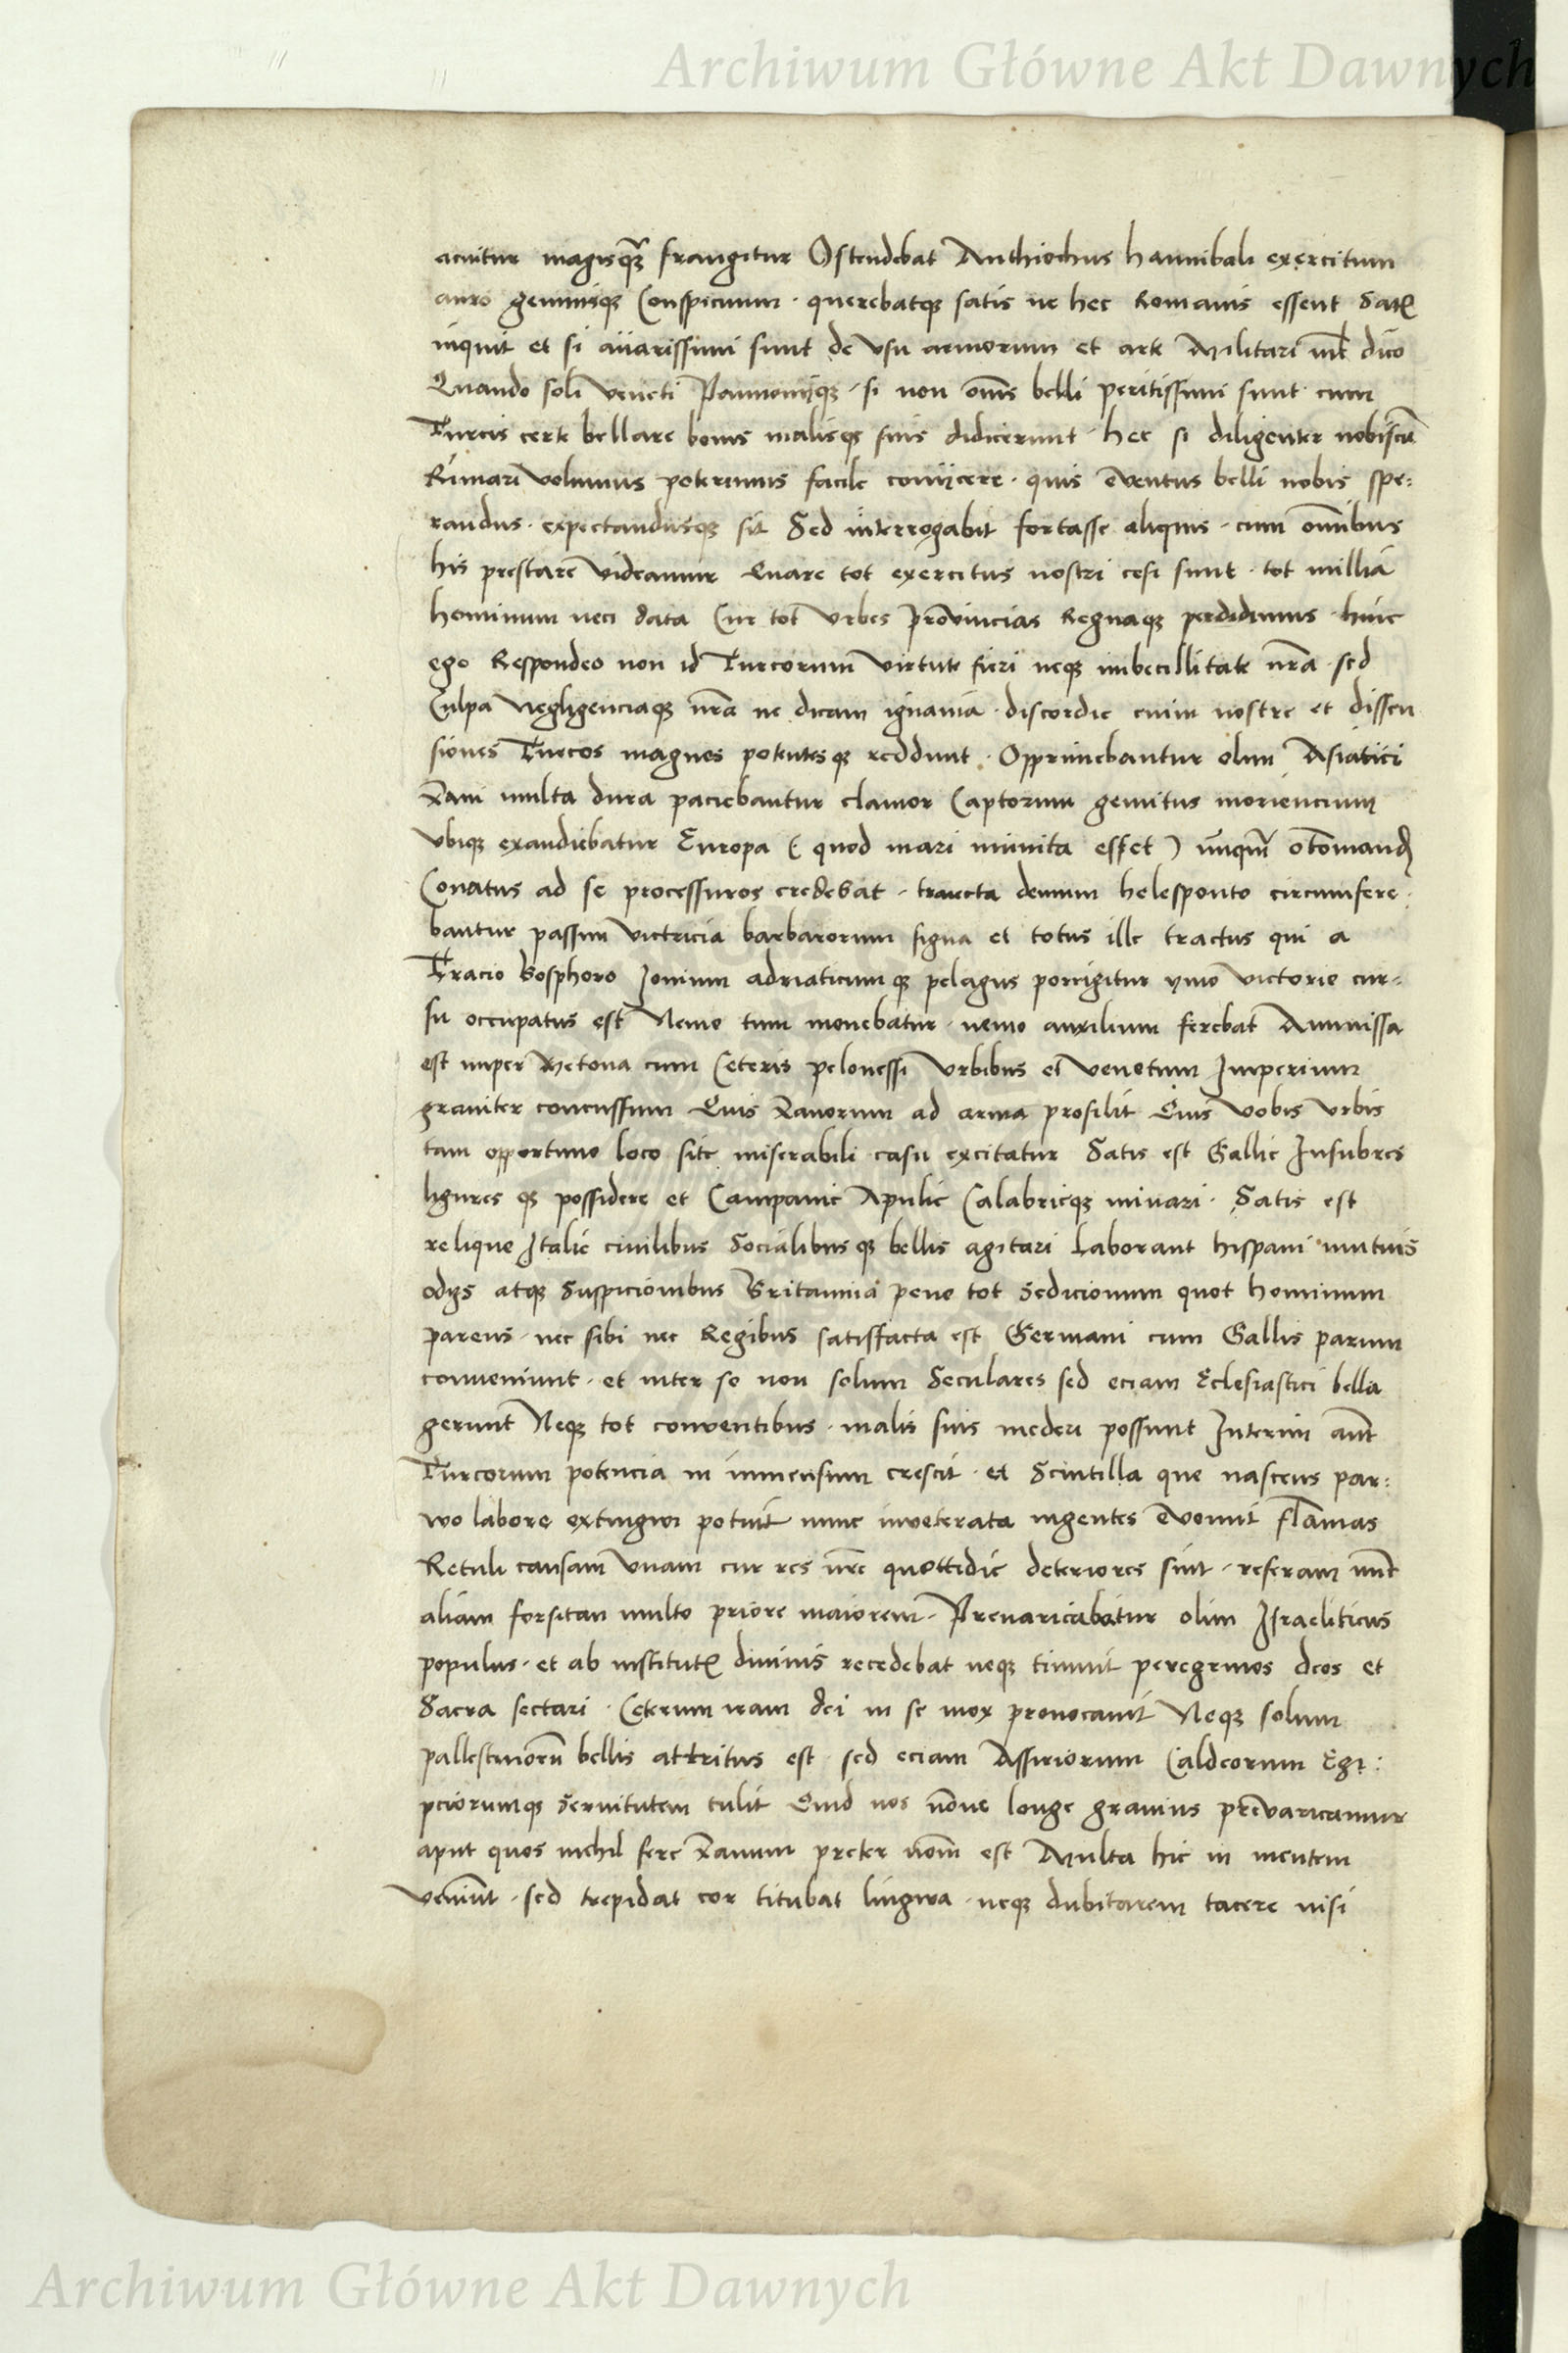 Archiwum Główne Akt Dawnych
acuitur magisqꝫ frangitur Ostendebat Anthiochus hannibali exercitum
auro gemmisqꝫ Conspicuum · querebatqꝫ satis ne hec Romanis essent Satꝭ
inquit et si auarissimi sunt de vsu armorum et arte Militari dico
Quando soli Veneti Pannoniiqꝫ · si non om̄s belli peritissimi sunt · cum
Turcis certe bellare bonis malisqꝫ suis didicerunt · hec si diligenter nobiscū
Rimari Volumus poterimus facile coniicere · quis Euentus belli nobis spe:
randus · expectandusqꝫ sit Sed interrogabit fortasse aliquis · cum omnibus
his prestare Videamur Quare tot exercitus nostri cesi sunt · tot millia
hominum neci data Cur tot Vrbes prouincias Regnaqꝫ perdidimus · huic
ego Respondeo non id Turcorum virtute fieri neqꝫ imbecillitate nr̄a · sed
Culpa Negligenciaqꝫ nr̄a ne dicam ignauia · discordie enim nostre et dissen
siones Turcos magnos potentesqꝫ reddunt · Opprimebantur olim Asiatici
xr̄ani multa dura paciebantur clamor Captorum gemitus moriencium
vbiqꝫ exaudiebatur Europa ( quod mari munita esset ) nunqm̄ otomanoꝝ
Conatus ad se processuros credebat · traiecta demum helesponto circumfere ·
bantur passim victricia barbarorum signa et totus ille tractus qui a
Tracio bosphoro Jonium adriaticumqꝫ pelagus porrigitur ymo victorie cur-
su occupatus est Nemo tum mouebatur · nemo auxilium ferebat Ammissa
est nuper Metona cum Ceteris pelonessi Vrbibus et Venetum Imperium
grauiter concussum Quis xr̄anorum ad arma prosilit Quis Vobis vrbis
tam opportuno loco site miserabili casu excitatur Satis est Gallie Insubres
ligures qꝫ possidere et Campanie Apulie Calabrieqꝫ minari · Satis est
relique Italie ciuilibus Socialibusqꝫ bellis agitari Laborant hispani mutuis
odiis atqꝫ Suspicionibus Britannia pene tot sedicionum quot hominum
parens · nec sibi nec Regibus satisfacta est Germani cum Gallis parum
conueniunt · et inter se non solum Seculares sed eciam Eclesiastici bella
gerunt Neqꝫ tot conventibus · malis suis mederi possunt Interim aut̄
Turcorum potencia in immensum crescit · et Scintilla que nascens par:
wo labore extingwi potuit nunc inveterata ingentes Euomit flamas
Retuli causam Vnam cur res nr̄e quottidie deteriores sint · referam nunc
aliam forsitan multo priore maiorem · Preuaricabatur olim Israeliticus
populus · et ab institutꝭ diuinis recedebat neqꝫ timuit peregrinos deos et
Sacra sectari · Ceterum iram dei in se mox prouocauit Neqꝫ solum
pallestinorū bellis attritus est · sed eciam Assiriorum Caldeorum Egi :
pciorumqꝫ Seruitutem tulit Quid nos nonne longe grauius preuaricamur
aput quos nichil fere xr̄anum preter nom̄ est Multa hic in mentem
veniunt · sed trepidat cor titubat lingwa · neqꝫ dubitarem tacere nisi
Archiwum Główne Akt Dawnych